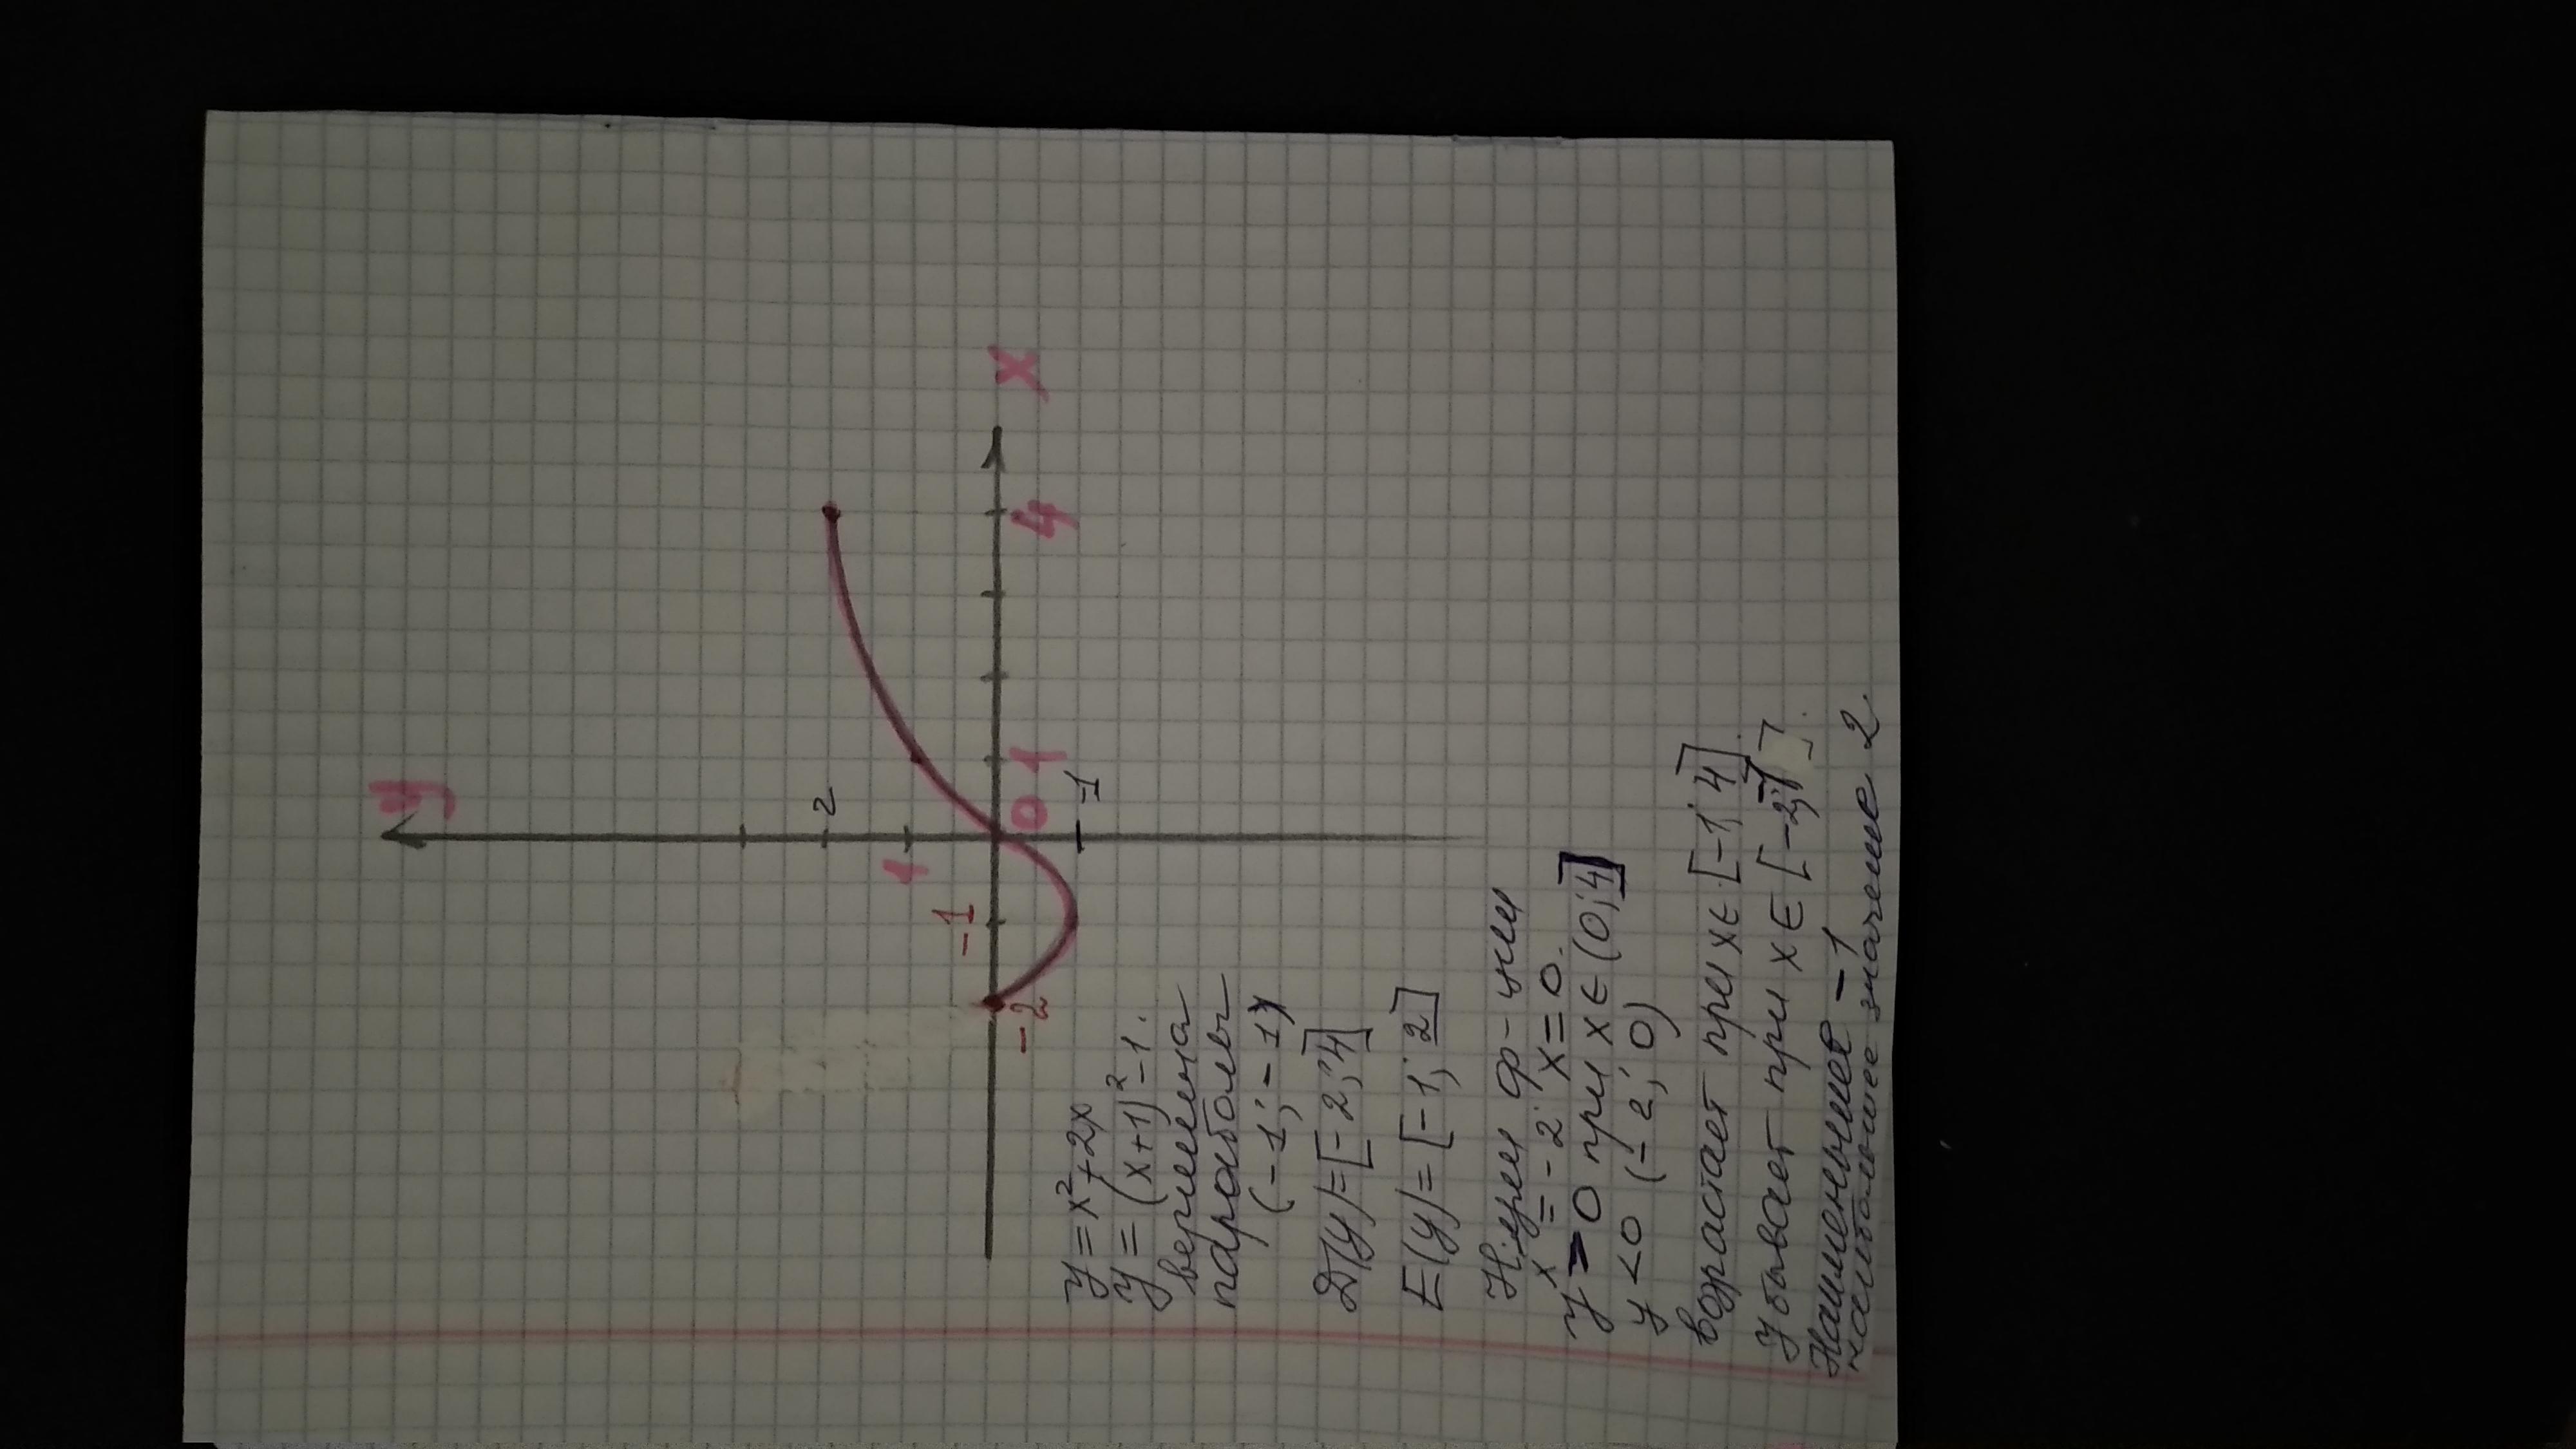 y
2
1
-1
x
-2
0
1
4
-1
y = x² + 2x
y = (x+1)² - 1.
вершина
параболы
(-1; -1)
D(y) = [-2; 4]
E(y) = [-1; 2]
Нули ф-ции
x = -2 x = 0.
y > 0 при x ∈ (0; 4]
y < 0 (-2; 0)
возрастает при x ∈ [-1; 4].
убывает при x ∈ [-2; -1].
Наименьшее -1
наибольшее значение 2